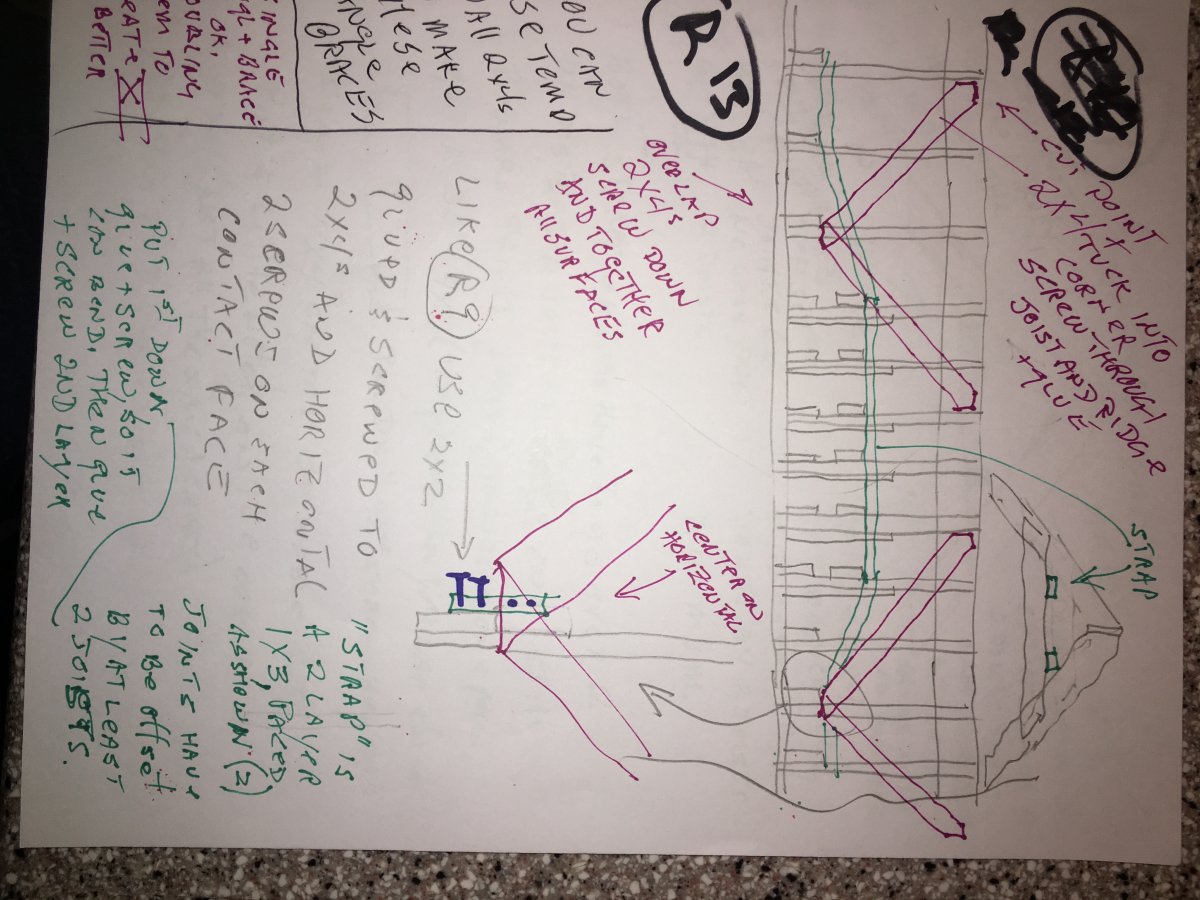 R 13
CUT POINT
+ TUCK INTO
CORNER
SCREW THROUGH
JOIST AND RIDGE
+ GLUE
2X4
STRAP
OVERLAP
2X4S
SCREW DOWN
AND TOGETHER
All SURFACES
CENTER ON
HORIZONTAL
OU CAN
SE TEMP
All 2X4s
MAKE
HESE
ANGLE
BRACES
SINGLE
BRACE
OK,
OUBLING
EM TO
EATE X
BETTER
LIKE R9 USE 2X2
GLUED & SCREWED TO
2X4s AND HORIZONTAL
2 SCREWS ON EACH
CONTACT FACE
"STRAP" IS
A 2 LAYER
1X3, PLACED
AS SHOWN (2)
PUT 1ST DOWN
GLUE + SCREW, SO IT
CAN BEND, THEN GLUE
+ SCREW 2ND LAYER
JOINTS HAVE
TO BE OFFSET
BY AT LEAST
2 JOISTS.